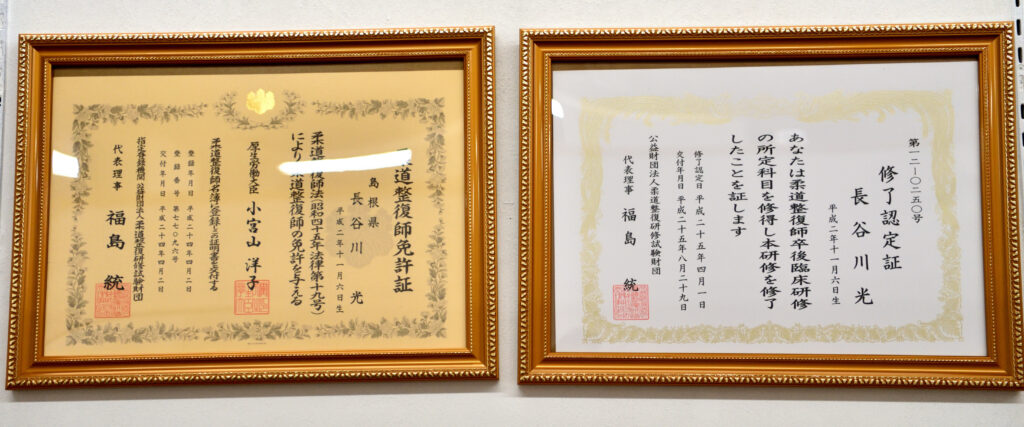 柔道整復師免許証
島根県
長谷川 光
平成二年十一月六日生
柔道整復師法(昭和四十五年法律第十九号)
により柔道整復師の免許を与える
厚生労働大臣 小宮山 洋子
柔道整復師名簿に登録しこの証明書を交付する
登録年月日 平成二十四年四月二日
登録番号 第七七〇九六号
交付年月日 平成二十四年四月二日
指定登録機関 公益財団法人柔道整復研修試験財団
代表理事 福島 統
第一二-〇二五〇号
修了認定証
長谷川 光
平成二年十一月六日生
あなたは柔道整復師卒後臨床研修
の所定科目を修得し本研修を修了
したことを証します
修了認定日 平成二十五年四月一日
交付年月日 平成二十五年八月二十九日
公益財団法人柔道整復研修試験財団
代表理事 福島 統